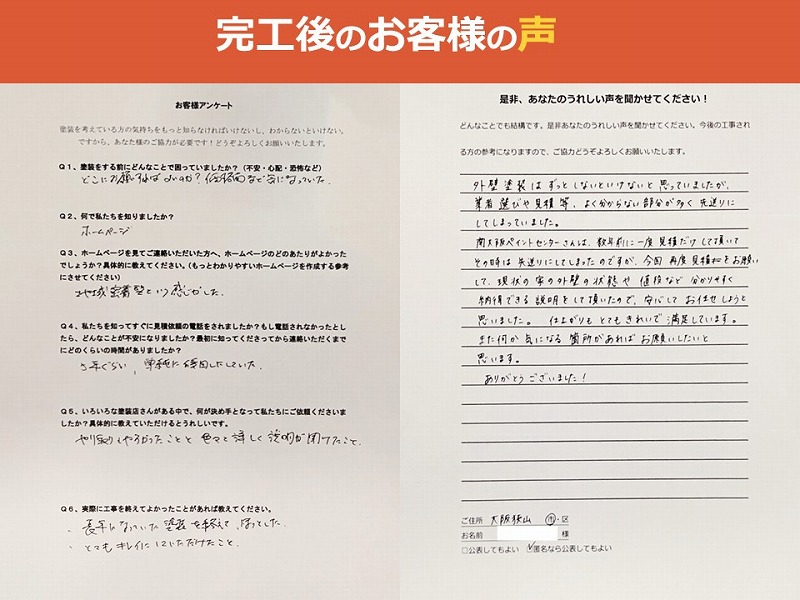 完工後のお客様の声
お客様アンケート
塗装を考えている方の気持ちをもっと知らなければいけないし、わからないといけない。
ですから、あなた様のご協力が必要です!どうぞよろしくお願いいたします。
Q1、塗装をする前にどんなことで困っていましたか?(不安・心配・恐怖など)
どこにお願いすればよいのか?価格面など気になっていた。
Q2、何で私たちを知りましたか?
ホームページ
Q3、ホームページを見てご連絡いただいた方へ、ホームページのどのあたりがよかった
でしょうか?具体的に教えてください。(もっとわかりやすいホームページを作成する参考
にさせてください)
地域密着型という感じがした。
Q4、私たちを知ってすぐに見積依頼の電話をされましたか?もし電話されなかったとし
たら、どんなことが不安になりましたか?最初に知ってくださってから連絡いただくまで
にどのくらいの時間がありましたか?
5年ぐらい、単純に後回しにしていた。
Q5、いろいろな塗装店さんがある中で、何が決め手となって私たちにご依頼くださいま
したか?具体的に教えていただけるとうれしいです。
やり取りしやすかったことと色々と詳しく説明が聞けたこと。
Q6、実際に工事を終えてよかったことがあれば教えてください。
・長年になっていた塗装を終えて、ほっとした。
・とてもキレイにしていただけたこと。
是非、あなたのうれしい声を聞かせてください!
どんなことでも結構です。是非あなたのうれしい声を聞かせてください。今後の工事され
る方の参考になりますので、ご協力どうぞよろしくお願いいたします。
外壁塗装はずっとしないといけないと思っていましたが、
業者選びや見積等、よく分からない部分が多く先送りに
してしまっていました。
南大阪ペイントセンターさんは、数年前に一度見積だけして頂いて
その時は先送りにしてしまったのですが、今回再度見積をお願い
して、現状の家の外壁の状態や値段など分かりやすく
納得できる説明をして頂いたので、安心してお任せしようと
思いました。仕上がりもとてもきれいで満足しています。
また何か気になる箇所があればお願いしたいと
思います。
ありがとうございました!
ご住所 大阪狭山 市・区
お名前 様
□公表してもよい ☑匿名なら公表してもよい